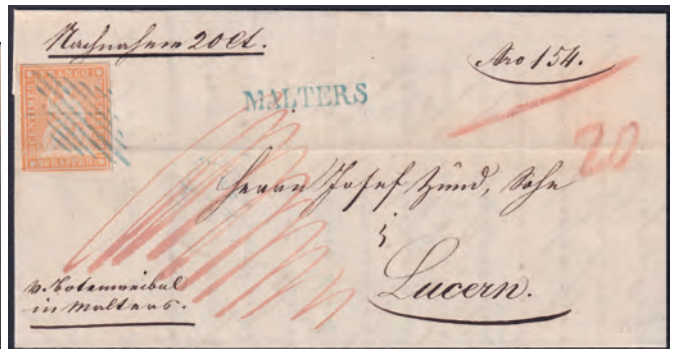 Nachnahme 20 Ct.
Nro 154.
FRANCO
RAPPEN
MALTERS
20
Herrn Josef Zünd, Sohn
Lucern.
v. Botenweibel
in Malters.